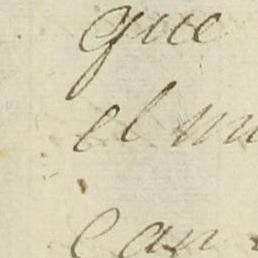 que
el
can